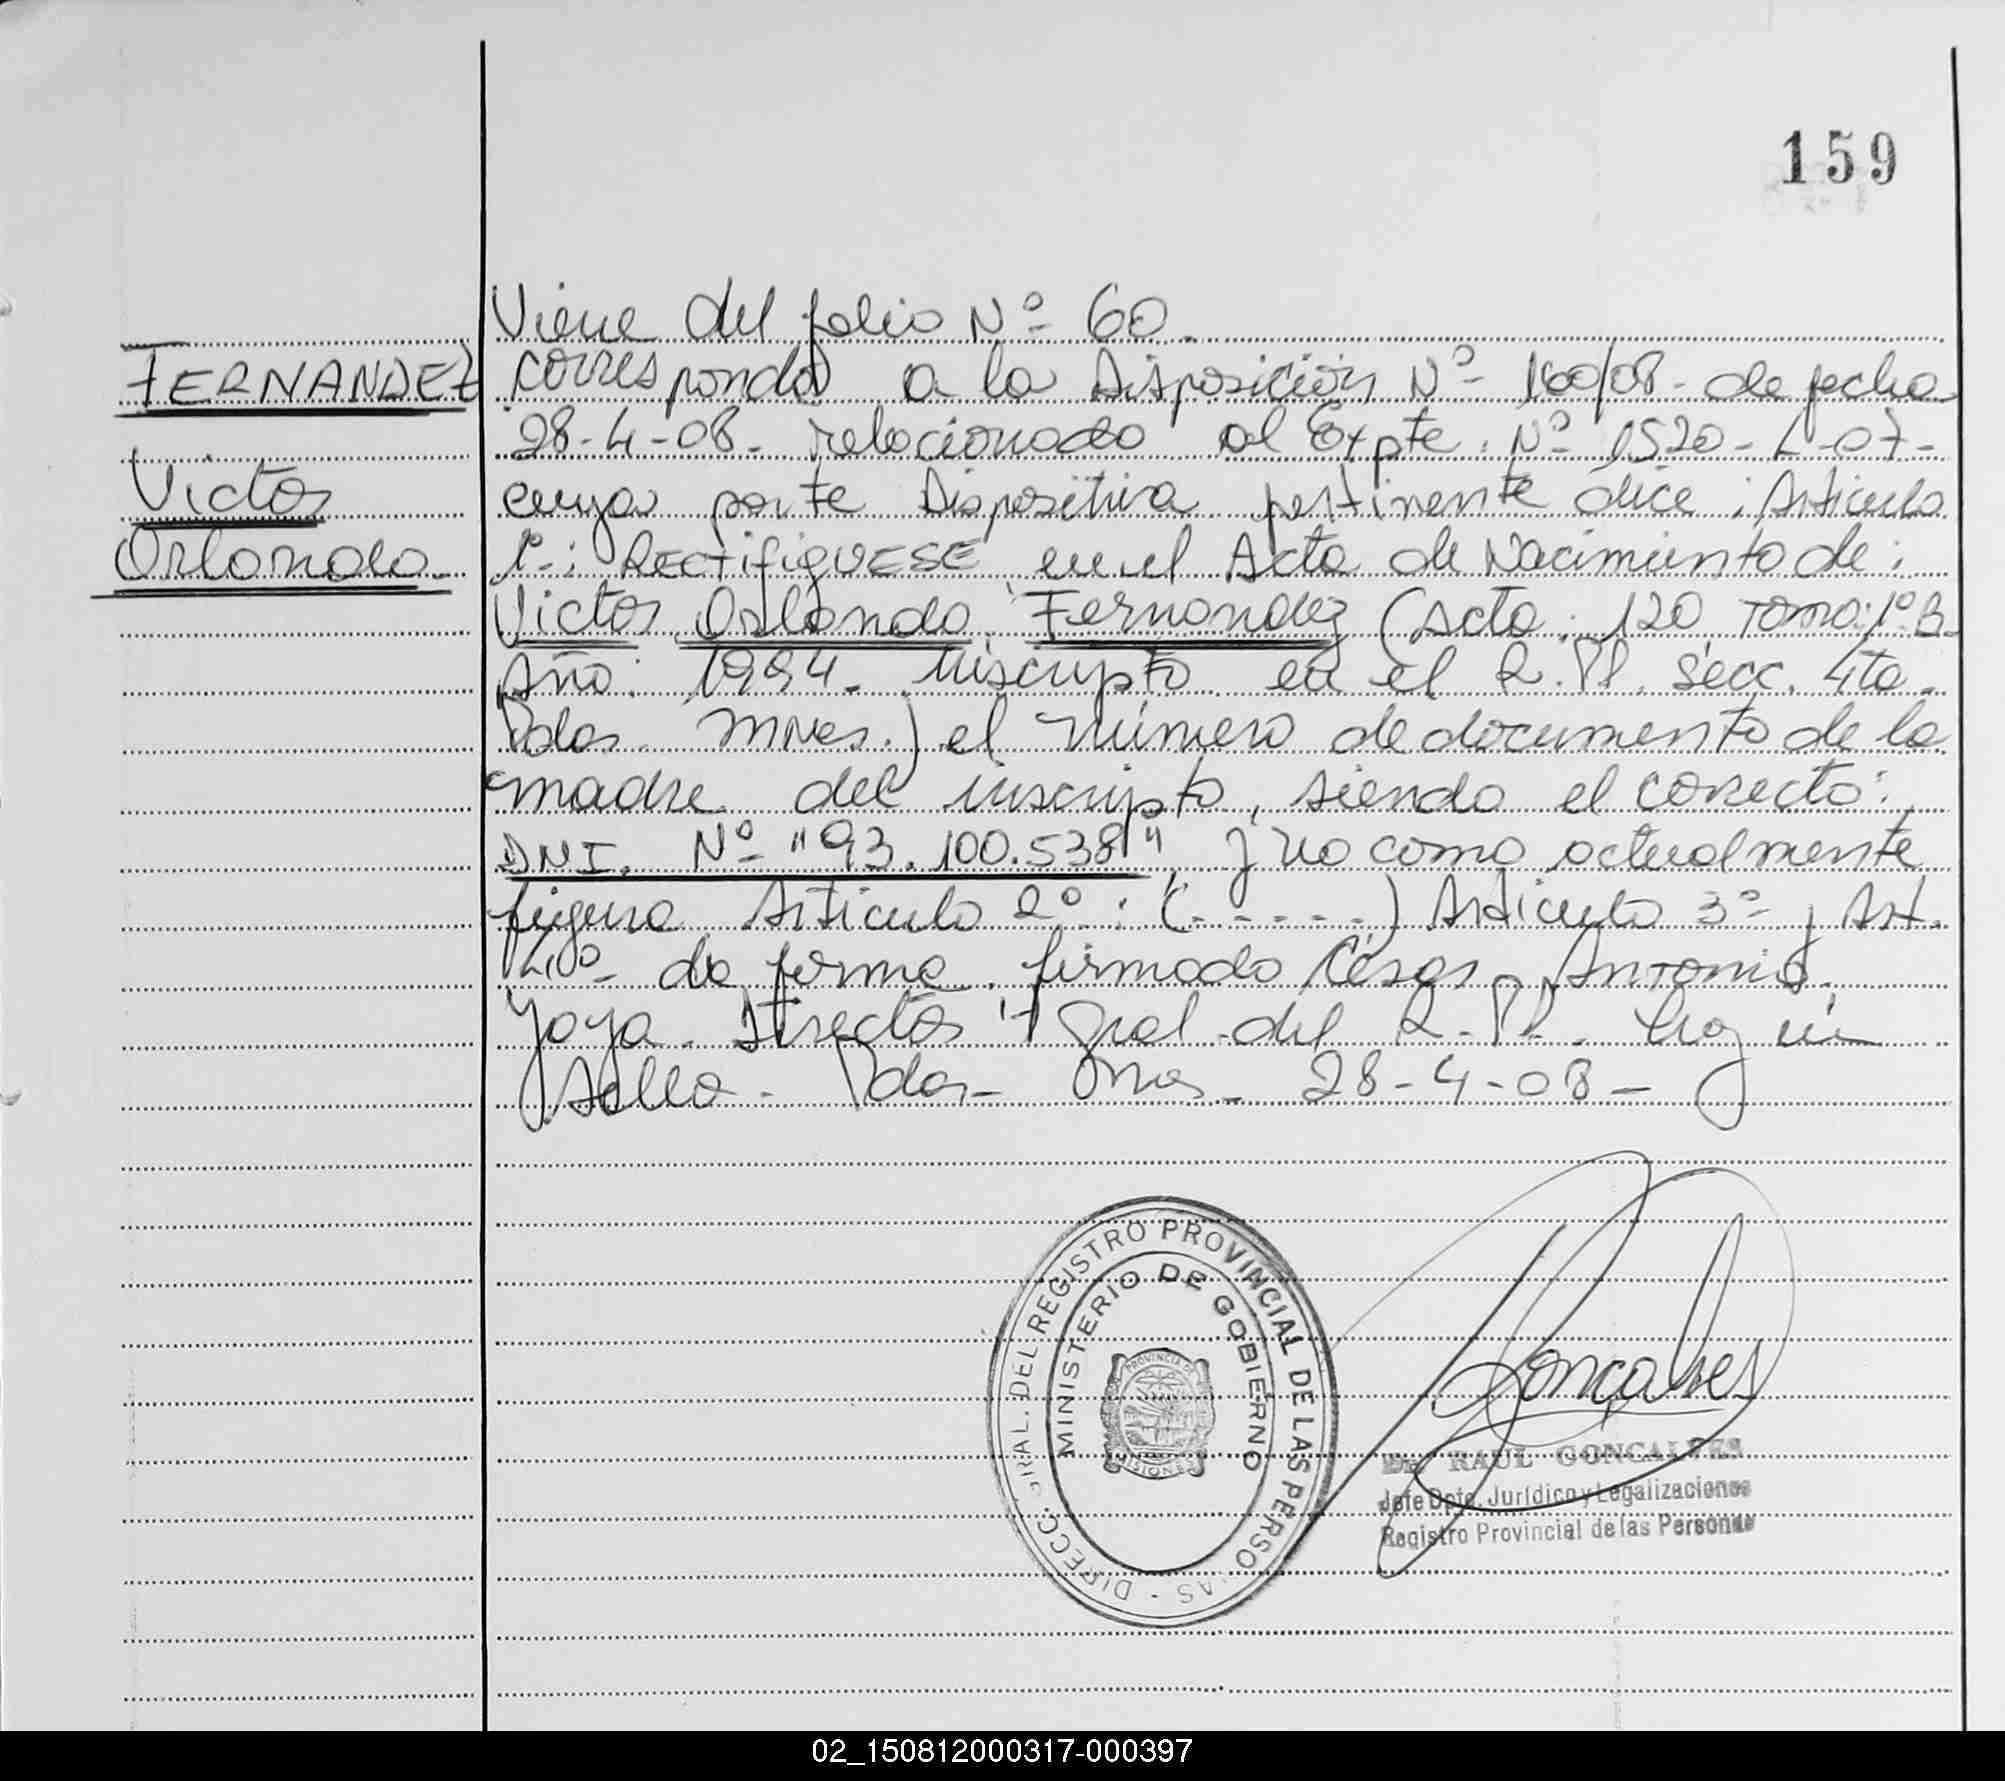 159
Viene del folio Nº 60.
FERNANDEZ
Victor
Orlando.
corresponde a la Disposición Nº 160/08 - de fecha
28-4-08 - relacionado al Expte. Nº 1520-L-07-
cuya parte Dispositiva pertinente dice: Articulo
1º-: RECTIFIQUESE en el Acta de Nacimiento de:
Victor Orlando Fernandez (Acta: 120 Tomo: 1º B-
Año: 1994. inscripto en el R.PP. Secc. 4ta.
Pdas. Mnes.) el número de documento de la
madre del inscripto, siendo el correcto:
DNI. Nº "93.100.538" y no como actualmente
figura Articulo 2º: (......) Articulo 3º y Art.
4º de forma. firmado Cesar Antonio
Yoya. Director Gral. del R.PP. Hay un
Sello - Pdas - Mnes - 28-4-08 -
DIRECC. GRAL. DEL REGISTRO PROVINCIAL DE LAS PERSONAS -
MINISTERIO DE GOBIERNO
PROVINCIA DE
MISIONES
Goncalves
Dr. RAUL GONCALVES
Jefe Dpto. Jurídico y Legalizaciones
Registro Provincial de las Personas
02_150812000317-000397